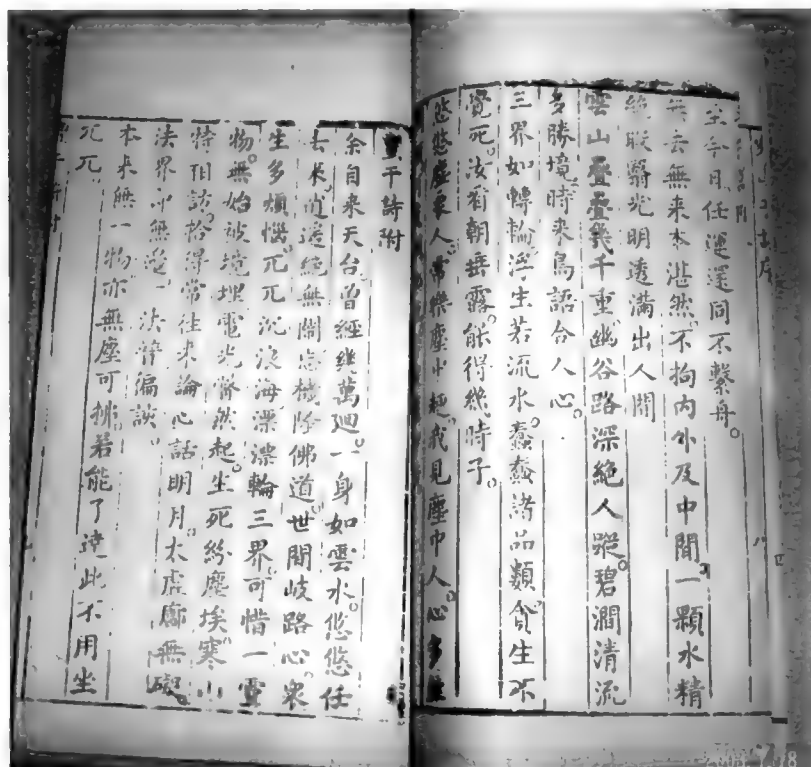 至今日任運還同不繫舟。
無去無来本湛然不拘内外及中間一顆水精
絶瑕翳光明透滿出人間
雲山疊疊幾千重幽谷路深絶人蹤碧澗清流
多勝境時来鳥語合人心。
三界如轉輪浮生若流水。蠢蠢諸品類貪生不
覺死。汝看朝垂露能得幾時子。
悠悠塵裏人。常樂塵中趣我見塵中人。心多
豐干詩附
余自来天台曾經幾萬迴。一身如雲水。悠悠任
去来。逍遥絶無鬧忘機隆佛道。世間岐路心。衆
生多煩惱。兀兀沉浪海漂漂輪三界。可惜一靈
物。無始被境埋電光瞥然起。生死紛塵埃。寒山
特相訪拾得常往来論心話明月。太虚廓無礙。
法界即無邊一法普徧該。
本来無一物。亦無塵可拂。若能了達此不用坐
兀兀。